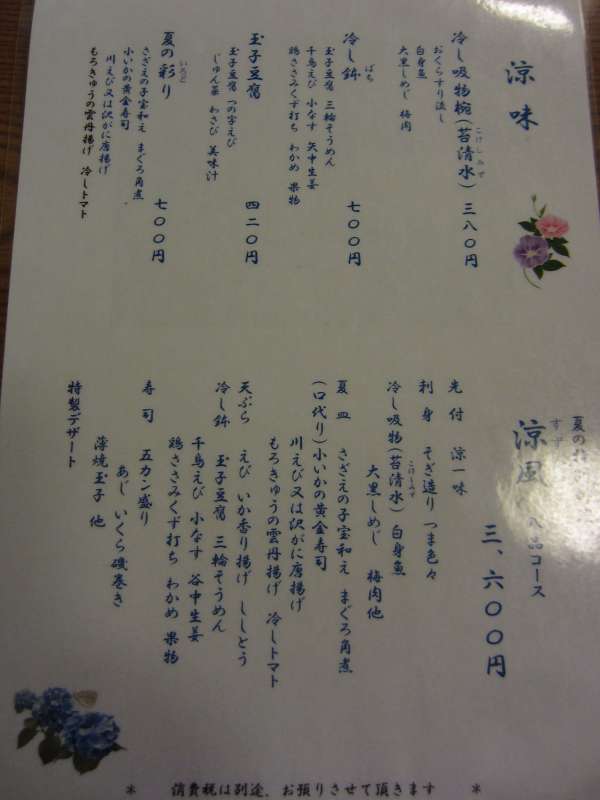 涼味
冷し吸物椀(苔清水) 三八〇円
こけしみず
おくらすり流し
白身魚
大黒しめじ 梅肉
冷し鉢 七〇〇円
ばち
玉子豆腐 三輪そうめん
千鳥えび 小なす 矢中生姜
鶏ささみくず打ち わかめ 果物
玉子豆腐 四二〇円
玉子豆腐 つの字えび
じゅん菜 わさび 美味汁
夏の彩り 七〇〇円
いろど
さざえの子宝和え まぐろ角煮
小いかの黄金寿司
川えび又は沢がに唐揚げ
もろきゅうの雲丹揚げ 冷しトマト
夏の
涼風 八品コース
すず
三、六〇〇円
先付 涼一味
刺身 そぎ造り つま色々
こけしみず
冷し吸物(苔清水) 白身魚
大黒しめじ 梅肉他
夏皿 さざえの子宝和え まぐろ角煮
(口代り) 小いかの黄金寿司
川えび又は沢がに唐揚げ
もろきゅうの雲丹揚げ 冷しトマト
天ぷら えび いか香り揚げ ししとう
冷し鉢 玉子豆腐 三輪そうめん
千鳥えび 小なす 谷中生姜
鶏ささみくず打ち わかめ 果物
寿司 五カン盛り
あじ いくら磯巻き
薄焼玉子 他
特製デザート
* 消費税は別途、お預りさせて頂きます *